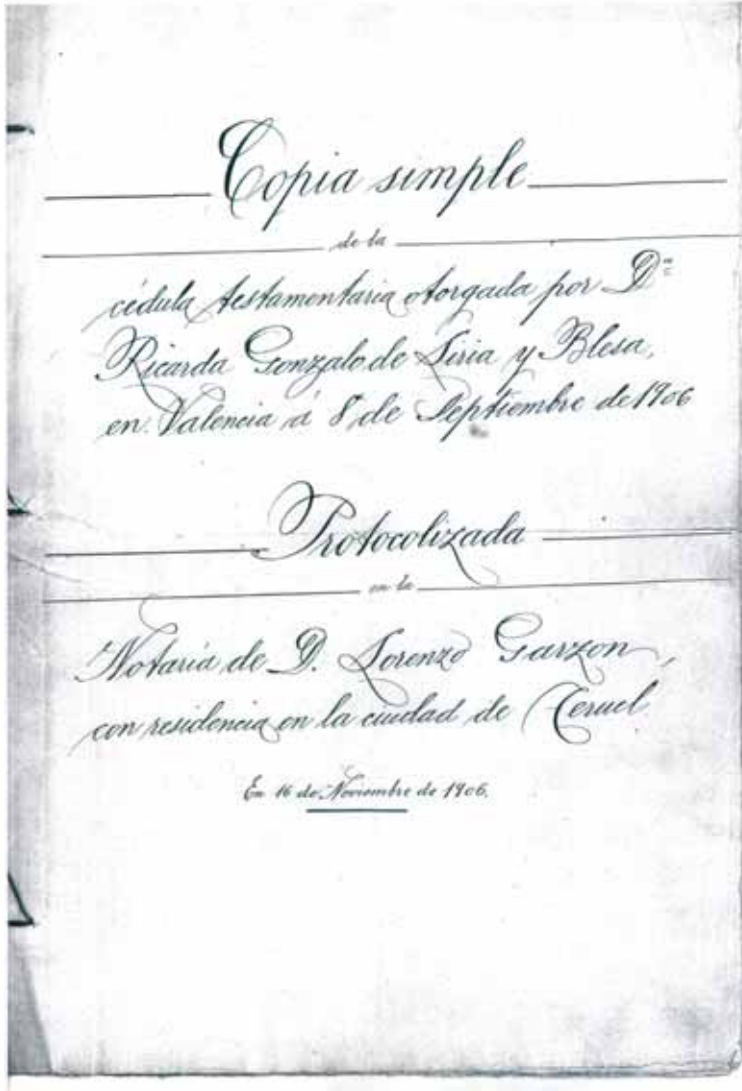 Copia simple
de la
cédula testamentaria otorgada por Dª
Ricarda Gonzalo de Liria y Blesa,
en Valencia á 8 de Septiembre de 1906
Protocolizada
en la
Notaría de D. Lorenzo Garzon,
con residencia en la ciudad de Teruel
En 16 de Noviembre de 1906.